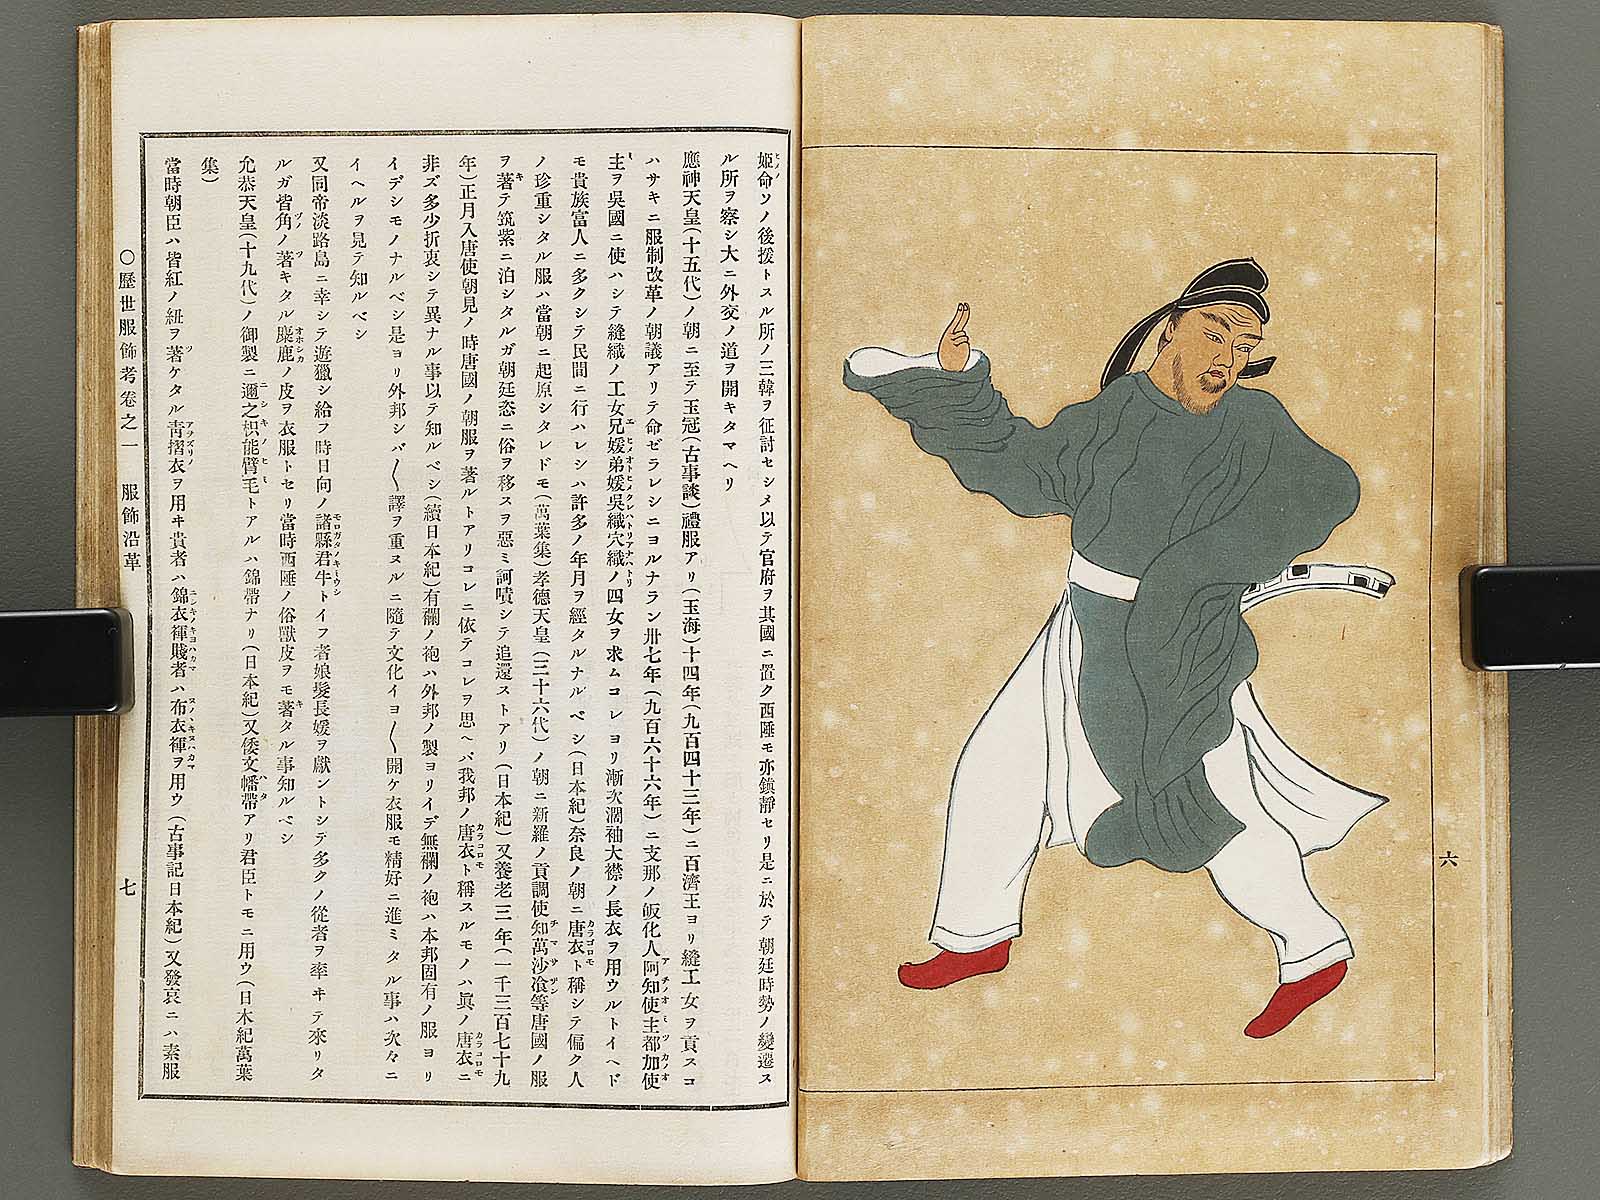 六
姫命ソノ後援トスル所ノ三韓ヲ征討セシメ以テ官府ヲ其國ニ置ク西陲モ亦鎭靜セリ是ニ於テ朝廷時勢ノ變遷ス
ル所ヲ察シ大ニ外交ノ道ヲ開キタマヘリ
應神天皇(十五代)ノ朝ニ至テ玉冠(古事談)禮服アリ(玉海)十四年(九百四十三年)ニ百濟王ヨリ縫工女ヲ貢スコ
ハサキニ服制改革ノ朝議アリテ命ゼラレシニヨルナラン卅七年(九百六十六年)ニ支那ノ皈化人阿知使主都加使
主ヲ吳國ニ使ハシテ縫織ノ工女兄媛弟媛吳織穴織ノ四女ヲ求ムコレヨリ漸次濶袖大襟ノ長衣ヲ用ウルトイヘド
モ貴族富人ニ多クシテ民間ニ行ハレシハ許多ノ年月ヲ經タルナルベシ(日本紀)奈良ノ朝ニ唐衣ト稱シテ偏ク人
ノ珍重シタル服ハ當朝ニ起原シタレドモ(萬葉集)孝德天皇(三十六代)ノ朝ニ新羅ノ貢調使知萬沙飡等唐國ノ服
ヲ著テ筑紫ニ泊シタルガ朝廷恣ニ俗ヲ移スヲ惡ミ訶嘖シテ追還ストアリ(日本紀)又養老三年(一千三百七十九
年)正月入唐使朝見ノ時唐國ノ朝服ヲ著ルトアリコレニ依テコレヲ思ヘバ我邦ノ唐衣ト稱スルモノハ眞ノ唐衣ニ
非ズ多少折衷シテ異ナル事以テ知ルベシ(續日本紀)有襴ノ袍ハ外邦ノ製ヨリイデ無襴ノ袍ハ本邦固有ノ服ヨリ
イデシモノナルベシ是ヨリ外邦シバ〱譯ヲ重ヌルニ隨テ文化イヨ〱開ケ衣服モ精好ニ進ミタル事ハ次々ニ
イヘルヲ見テ知ルベシ
又同帝淡路島ニ幸シテ遊獵シ給フ時日向ノ諸縣君牛トイフ者娘髮長媛ヲ獻ントシテ多クノ從者ヲ率ヰテ來リタ
ルガ皆角ノ著キタル麋鹿ノ皮ヲ衣服トセリ當時西陲ノ俗獸皮ヲモ著タル事知ルベシ
允恭天皇(十九代)ノ御製ニ邇之枳能臂毛トアルハ錦帶ナリ(日本紀)又倭文幡帶アリ君臣トモニ用ウ(日本紀萬葉
集)
當時朝臣ハ皆紅ノ紐ヲ著ケタル靑摺衣ヲ用ヰ貴者ハ錦衣褌賤者ハ布衣褌ヲ用ウ(古事記日本紀)又發哀ニハ素服
○歷世服飾考卷之一 服飾沿革 七